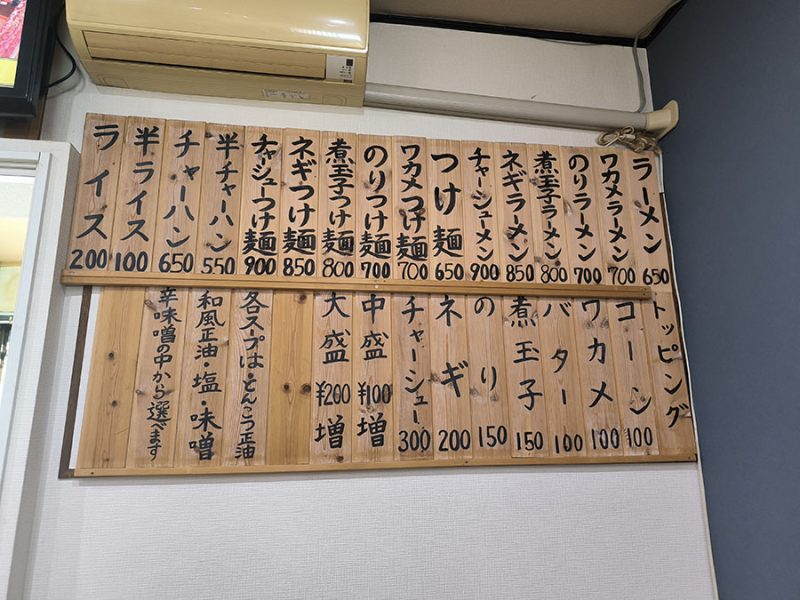 ラーメン 650
ワカメラーメン 700
のりラーメン 700
煮玉子ラーメン 800
ネギラーメン 850
チャーシューメン 900
つけ麺 650
ワカメつけ麺 700
のりつけ麺 700
煮玉子つけ麺 800
ネギつけ麺 850
チャーシューつけ麺 900
半チャーハン 550
チャーハン 650
半ライス 100
ライス 200
トッピング
コーン 100
ワカメ 100
バター 100
煮玉子 150
のり 150
ネギ 200
チャーシュー 300
中盛 ¥100増
大盛 ¥200増
各スープはとんこつ正油
和風正油・塩・味噌
辛味噌の中から選べます